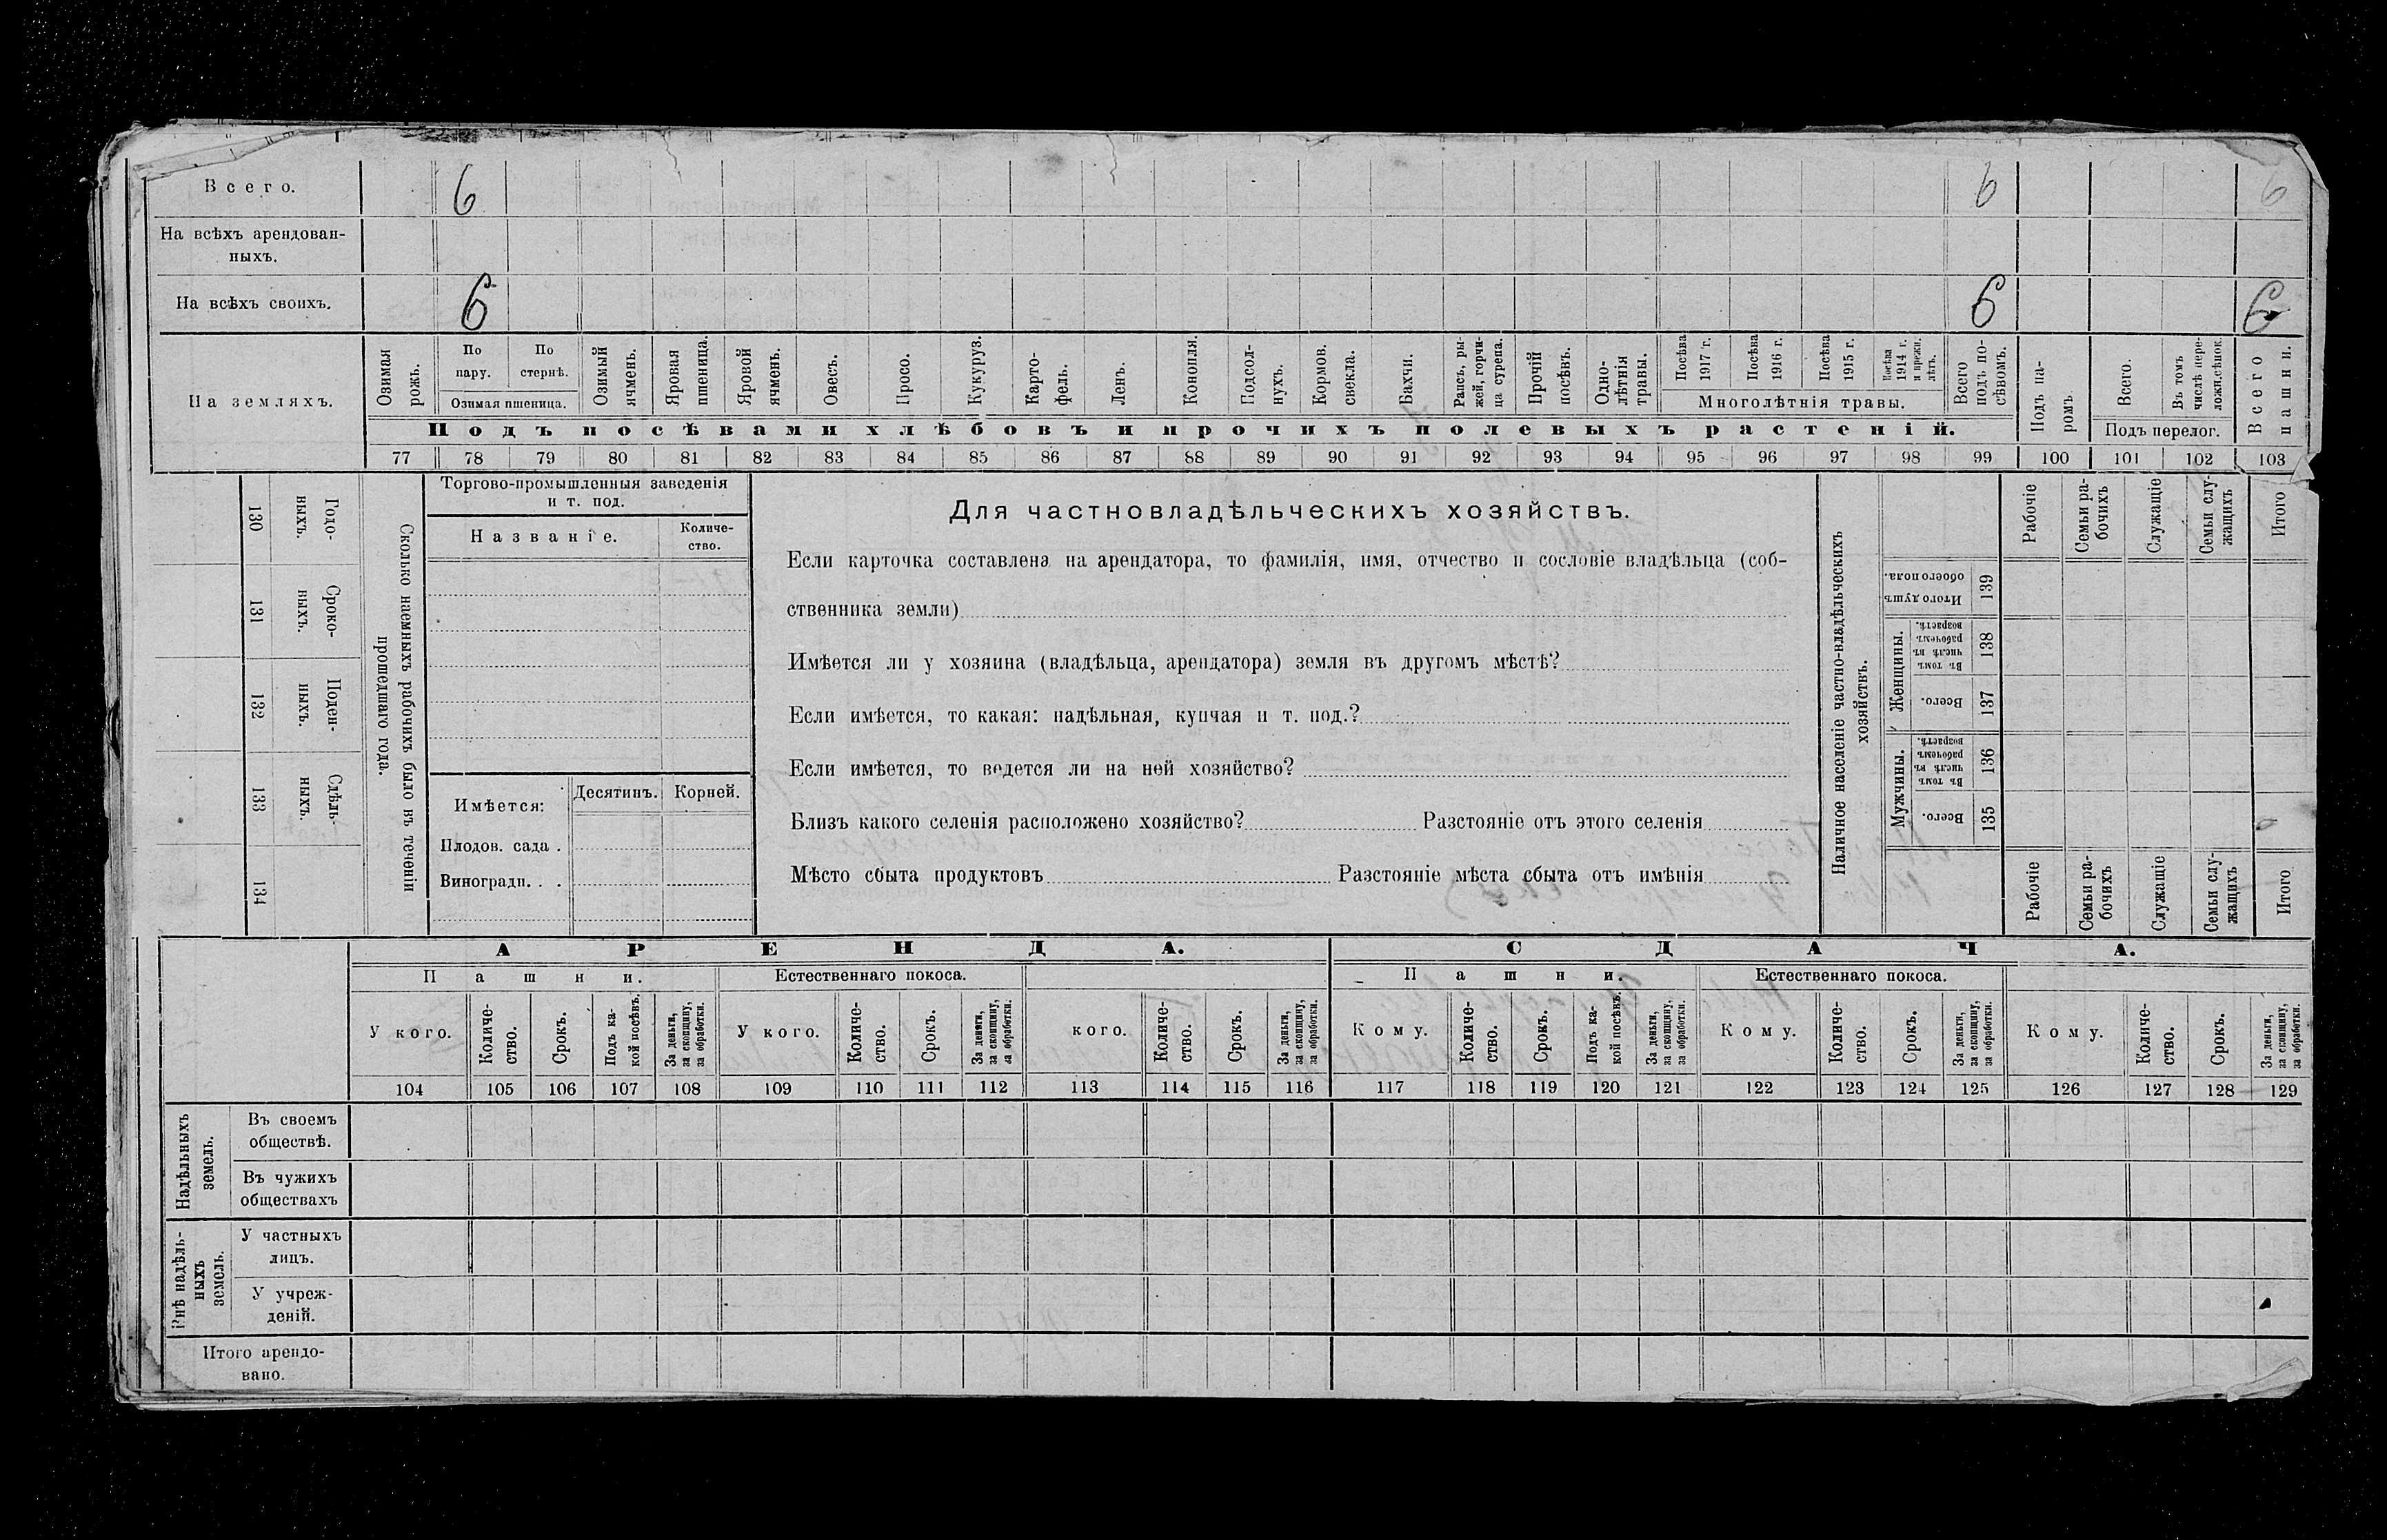 Всего. 6 6 6
На всѣхъ арендован-
ныхъ.
На всѣхъ своихъ. 6 6 6
На земляхъ.
Озимая рожь.
По пару.
По стернѣ.
Озимая пшеница.
Озимый ячмень.
Яровая пшеница.
Яровой ячмень.
Овесъ.
Просо.
Кукуруз.
Карто-
фель.
Ленъ.
Конопля.
Подсол-
нухъ.
Кормов. свекла.
Бахчи.
Рапсъ, ры-
жей, горчи-
ца сурепа.
Прочій посѣвъ.
Одно-
лѣтнія травы.
Посѣва 1917 г.
Посѣва 1916 г.
Посѣва 1915 г.
Посѣва 1914 г. и прежн. лѣтъ.
Многолѣтнія травы.
Всего подъ по-
сѣвомъ.
Подъ па-
ромъ.
Всего.
Въ томъ числѣ пере-
ложн.сѣнок.
Подъ перелог.
Всего пашни.
Подъ посѣвами хлѣбовъ и прочихъ полевыхъ растеній.
77 78 79 80 81 82 83 84 85 86 87 88 89 90 91 92 93 94 95 96 97 98 99 100 101 102 103
Сколько наемныхъ рабочихъ было въ теченіи
прошедшаго года.
Годо-
выхъ.
130
Сроко-
ныхъ.
131
Поден-
ныхъ.
132
Сдѣль-
ныхъ.
133
134
Торгово-промышленныя заведенія
и т. под.
Названіе.
Количе-
ство.
Имѣется:
Десятинъ.
Корней.
Плодов. сада .
Виноградн. . .
Для частновладѣльческихъ хозяйствъ.
Если карточка составлена на арендатора, то фамилія, имя, отчество и сословіе владѣльца (соб-
ственника земли)
Имѣется ли у хозяина (владѣльца, арендатора) земля въ другомъ мѣстѣ?
Если имѣется, то какая: надѣльная, купчая и т. под.?
Если имѣется, то ведется ли на ней хозяйство?
Близъ какого селенія расположено хозяйство? Разстояніе отъ этого селенія
Мѣсто сбыта продуктовъ Разстояніе мѣста сбыта отъ имѣнія
Наличное населеніе частно-владѣльческихъ
хозяйствъ.
Рабочіе
Семьи ра-
бочихъ
Служащіе
Семьи слу-
жащихъ
Итого
Итого душъ обоего пола.
139
Женщины.
Въ томъ числѣ въ рабочемъ возрастѣ.
138
Всего.
137
Мужчины.
Въ томъ числѣ въ рабочемъ возрастѣ.
136
Всего.
135
Рабочіе
Семьи ра-
бочихъ
Служащіе
Семьи слу-
жащихъ
Итого
АРЕНДА. СДАЧА.
Пашни. Естественнаго покоса. Пашни. Естественнаго покоса.
У кого.
Количе-
ство.
Срокъ.
Подъ ка-
кой посѣвъ.
За деньги, за скопщину, за обработки.
У кого.
Количе-
ство.
Срокъ.
За деньги, за скопщину, за обработки.
кого.
Количе-
ство.
Срокъ.
За деньги, за скопщину, за обработки.
Кому.
Количе-
ство.
Срокъ.
Подъ ка-
кой посѣвъ.
За деньги, за скопщину, за обработки.
Кому.
Количе-
ство.
Срокъ.
За деньги, за скопщину, за обработки.
Кому.
Количе-
ство.
Срокъ.
За деньги, за скопщину, за обработки.
104 105 106 107 108 109 110 111 112 113 114 115 116 117 118 119 120 121 122 123 124 125 126 127 128 129
Надѣльныхъ
земель.
Въ своемъ
обществѣ.
Въ чужихъ
обществахъ
Внѣ надѣль-
ныхъ
земель.
У частныхъ
лицъ.
У учреж-
деній.
Итого арендо-
вано.